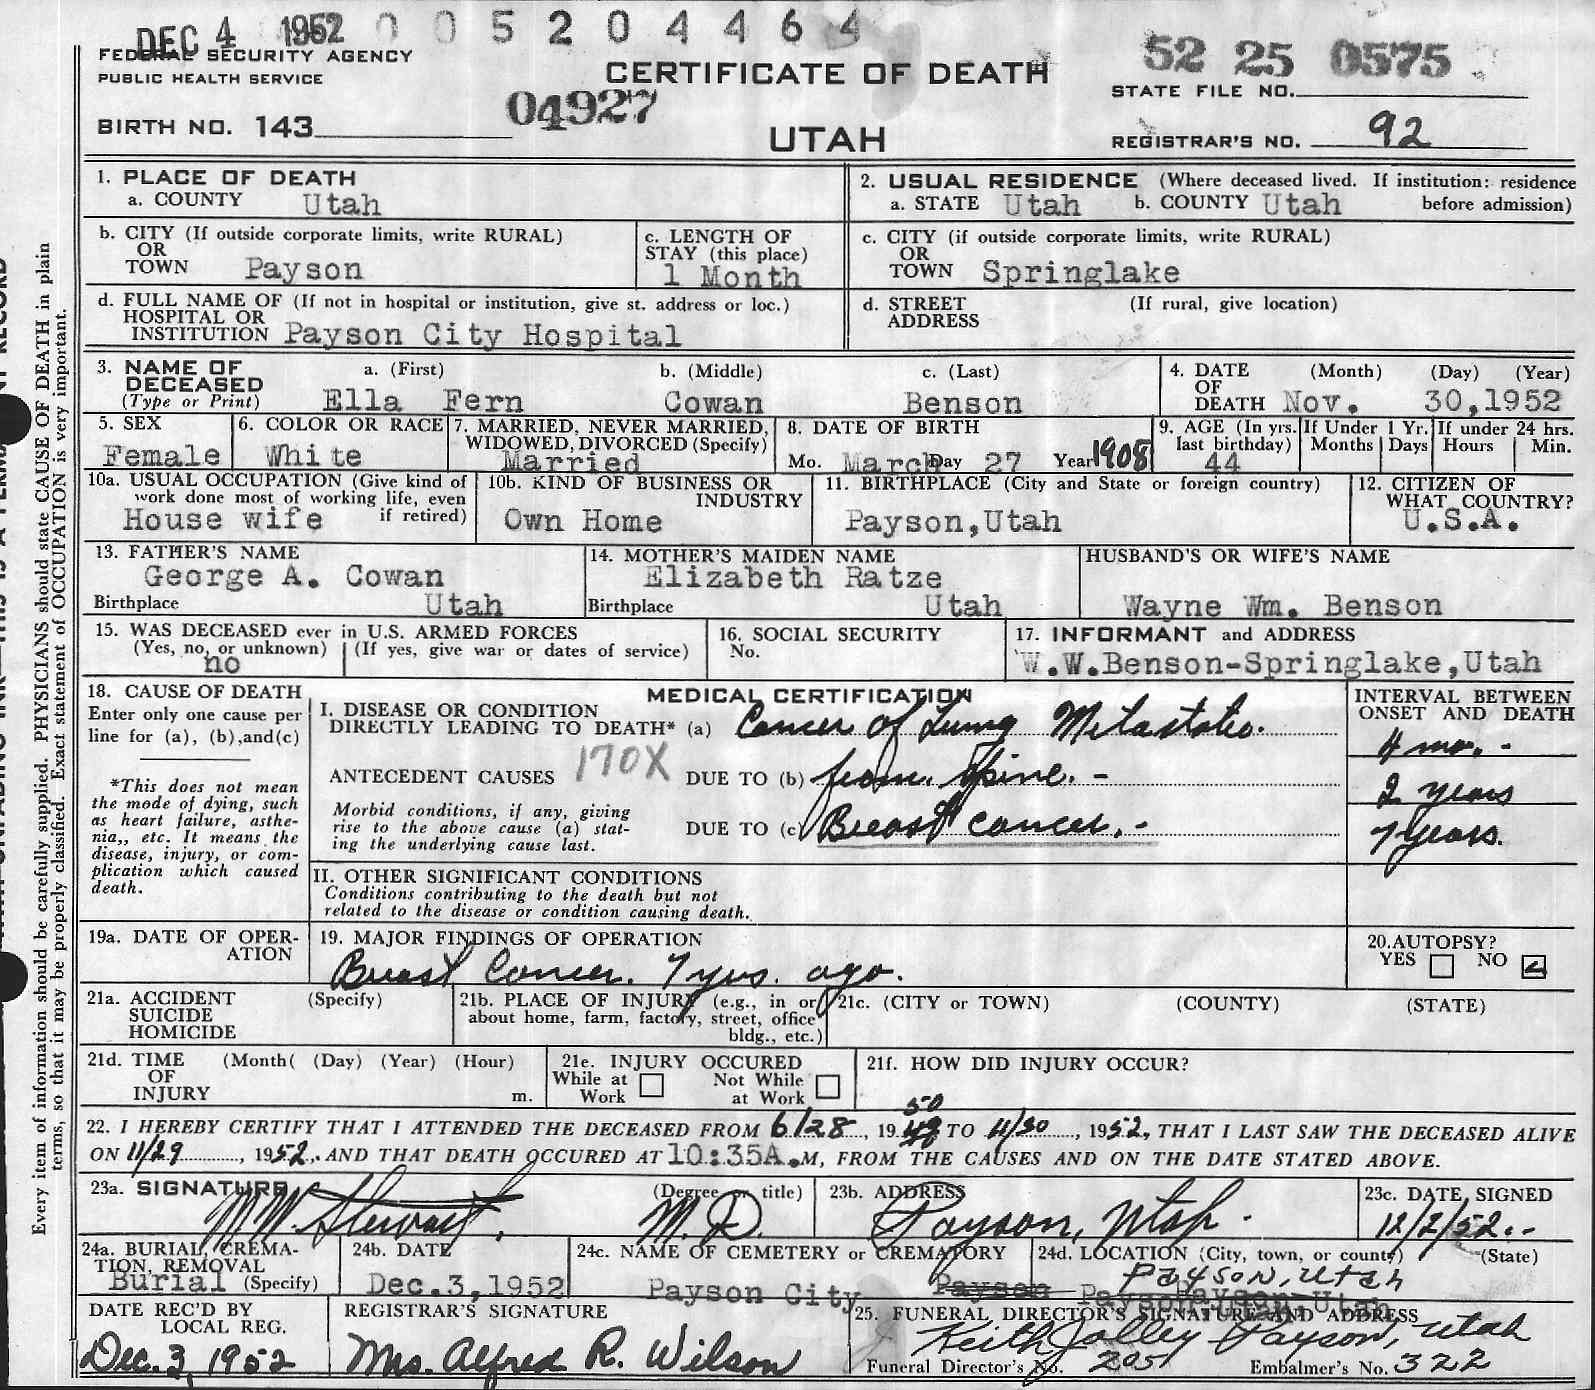 DEC 4 1952 0 0 5 2 0 4 4 6 4
FEDERAL SECURITY AGENCY
PUBLIC HEALTH SERVICE
CERTIFICATE OF DEATH
52 25 0575
STATE FILE NO.
04927
BIRTH NO. 143
UTAH
REGISTRAR'S NO. 92
1. PLACE OF DEATH
a. COUNTY Utah
2. USUAL RESIDENCE (Where deceased lived. If institution: residence
a. STATE Utah b. COUNTY Utah before admission)
b. CITY (If outside corporate limits, write RURAL)
OR
TOWN Payson
c. LENGTH OF
STAY (this place)
1 Month
c. CITY (if outside corporate limits, write RURAL)
OR
TOWN Springlake
d. FULL NAME OF (If not in hospital or institution, give st. address or loc.)
HOSPITAL OR
INSTITUTION Payson City Hospital
d. STREET (If rural, give location)
ADDRESS
3. NAME OF a. (First) b. (Middle) c. (Last)
DECEASED
(Type or Print) Ella Fern Cowan Benson
4. DATE (Month) (Day) (Year)
OF
DEATH Nov. 30,1952
5. SEX
Female
6. COLOR OR RACE
White
7. MARRIED, NEVER MARRIED,
WIDOWED, DIVORCED (Specify)
Married
8. DATE OF BIRTH
Mo. March Day 27 Year 1908
9. AGE (In yrs.
last birthday)
44
If Under 1 Yr.
Months Days
If under 24 hrs.
Hours Min.
10a. USUAL OCCUPATION (Give kind of
work done most of working life, even
House wife if retired)
10b. KIND OF BUSINESS OR
INDUSTRY
Own Home
11. BIRTHPLACE (City and State or foreign country)
Payson,Utah
12. CITIZEN OF
WHAT COUNTRY?
U.S.A.
13. FATHER'S NAME
George A. Cowan
Birthplace Utah
14. MOTHER'S MAIDEN NAME
Elizabeth Ratze
Birthplace Utah
HUSBAND'S OR WIFE'S NAME
Wayne Wm. Benson
15. WAS DECEASED ever in U.S. ARMED FORCES
(Yes, no, or unknown) (If yes, give war or dates of service)
no
16. SOCIAL SECURITY
No.
17. INFORMANT and ADDRESS
W.W.Benson-Springlake,Utah
18. CAUSE OF DEATH
Enter only one cause per
line for (a), (b),and(c)
*This does not mean
the mode of dying, such
as heart failure, asthe-
nia,, etc. It means the
disease, injury, or com-
plication which caused
death.
MEDICAL CERTIFICATION
I. DISEASE OR CONDITION
DIRECTLY LEADING TO DEATH* (a) Cancer of Lung Metastatic.
170X
ANTECEDENT CAUSES DUE TO (b) from Spine. -
Morbid conditions, if any, giving
rise to the above cause (a) stat-
ing the underlying cause last.
DUE TO (c) Breast cancer. -
INTERVAL BETWEEN
ONSET AND DEATH
4 mo. -
2 years
7 years.
II. OTHER SIGNIFICANT CONDITIONS
Conditions contributing to the death but not
related to the disease or condition causing death.
19a. DATE OF OPER-
ATION
19. MAJOR FINDINGS OF OPERATION
Breast Cancer. 7 yrs. ago.
20.AUTOPSY?
YES NO
21a. ACCIDENT (Specify)
SUICIDE
HOMICIDE
21b. PLACE OF INJURY (e.g., in or
about home, farm, factory, street, office
bldg., etc.)
21c. (CITY or TOWN) (COUNTY) (STATE)
21d. TIME (Month( (Day) (Year) (Hour)
OF
INJURY m.
21e. INJURY OCCURED
While at Work Not While at Work
21f. HOW DID INJURY OCCUR?
50
22. I HEREBY CERTIFY THAT I ATTENDED THE DECEASED FROM 6/28, 19 TO 11/30, 1952, THAT I LAST SAW THE DECEASED ALIVE
ON 11/29, 1952, AND THAT DEATH OCCURED AT 10:35A.M, FROM THE CAUSES AND ON THE DATE STATED ABOVE.
23a. SIGNATURE (Degree or title)
M.W. Stewart, M.D.
23b. ADDRESS
Payson, Utah -
23c. DATE SIGNED
12/2/52.-
24a. BURIAL, CREMA-
TION, REMOVAL
Burial (Specify)
24b. DATE
Dec.3,1952
24c. NAME OF CEMETERY or CREMATORY
Payson City Payson
24d. LOCATION (City, town, or county) (State)
Payson, Utah
DATE REC'D BY
LOCAL REG.
Dec. 3, 1952
REGISTRAR'S SIGNATURE
Mrs. Alfred R. Wilson
25. FUNERAL DIRECTOR'S SIGNATURE AND ADDRESS
Keith Jolley Payson, Utah
Funeral Director's No. 205 Embalmer's No. 322
Every item of information should be carefully supplied. PHYSICIANS should state CAUSE OF DEATH in plain
terms, so that it may be properly classified. Exact statement of OCCUPATION is very important.